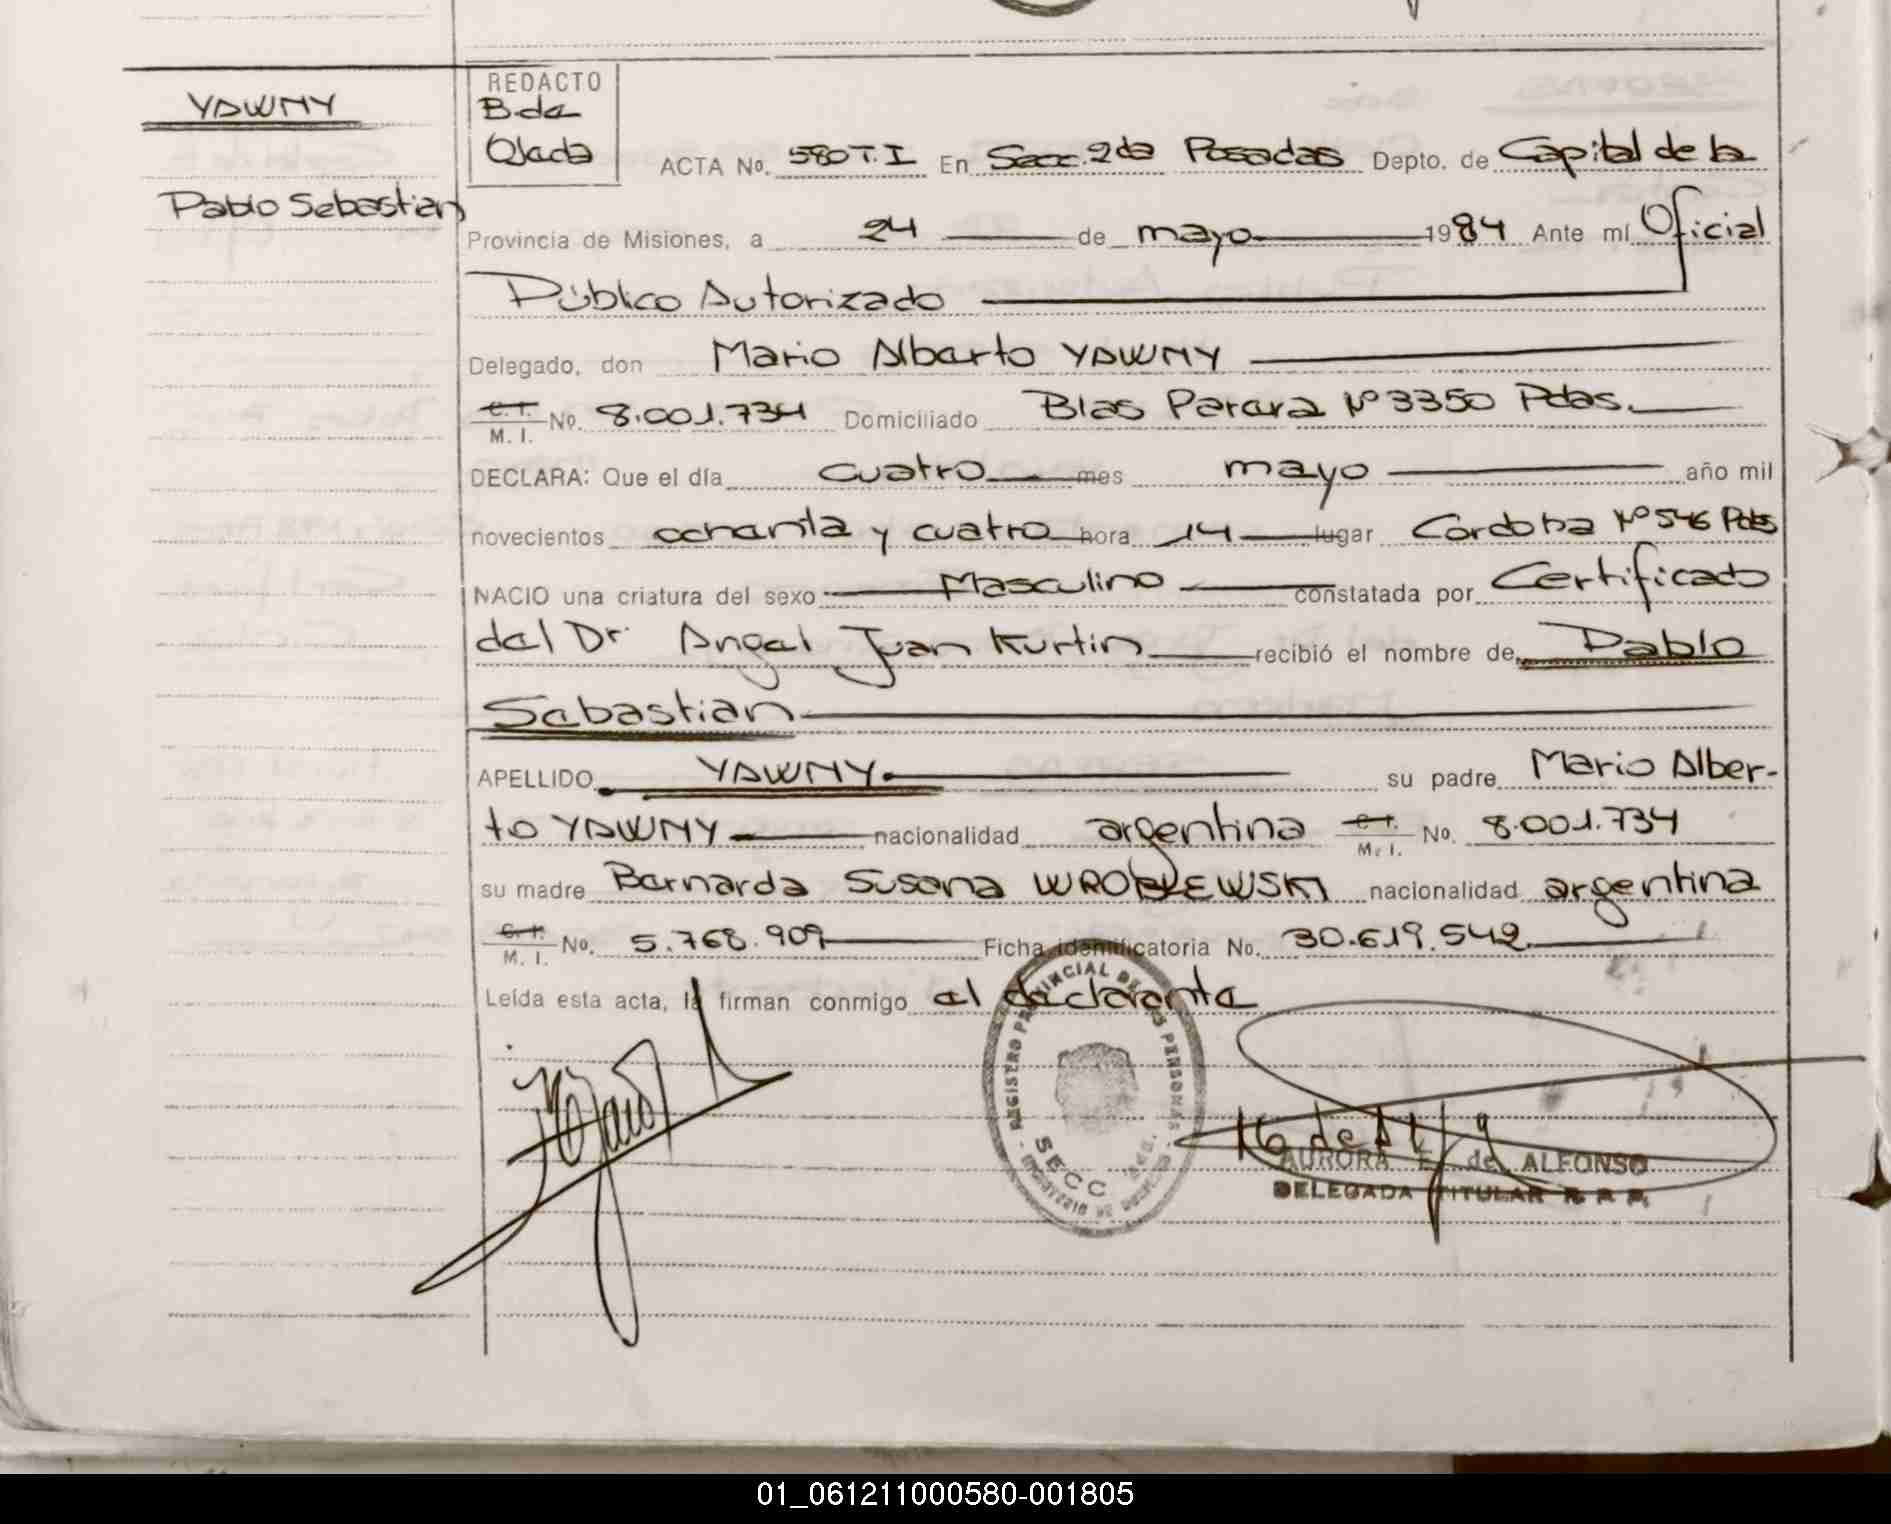 YAWNY
Pablo Sebastian
REDACTO
B. de
Ojeda
ACTA No. 580 T. I En Secc. 2da Posadas Depto. de Capital de la
Provincia de Misiones, a 24 de mayo 1984 Ante mí Oficial
Público Autorizado
Delegado, don Mario Alberto YAWNY
C. I. M. I. No. 8.001.734 Domiciliado Blas Parera Nº 3350 Pdas.
DECLARA: Que el día cuatro mes mayo año mil
novecientos ochenta y cuatro hora 14 lugar Cordoba Nº 546 Pdas
NACIO una criatura del sexo Masculino constatada por Certificado
del Dr. Angel Juan Kurtin recibió el nombre de Pablo
Sebastian
APELLIDO YAWNY su padre Mario Alber-
to YAWNY nacionalidad argentina C. I. M. I. No. 8.001.734
su madre Bernarda Susana WROBLEWSKI nacionalidad argentina
C. I. M. I. No. 5.768.909 Ficha identificatoria No. 30.619.542
Leída esta acta, la firman conmigo el declarante
REGISTRO PROVINCIAL DE LAS PERSONAS
SECC
AURORA E. de ALFONSO
DELEGADA TITULAR R. P. P.
01_061211000580-001805